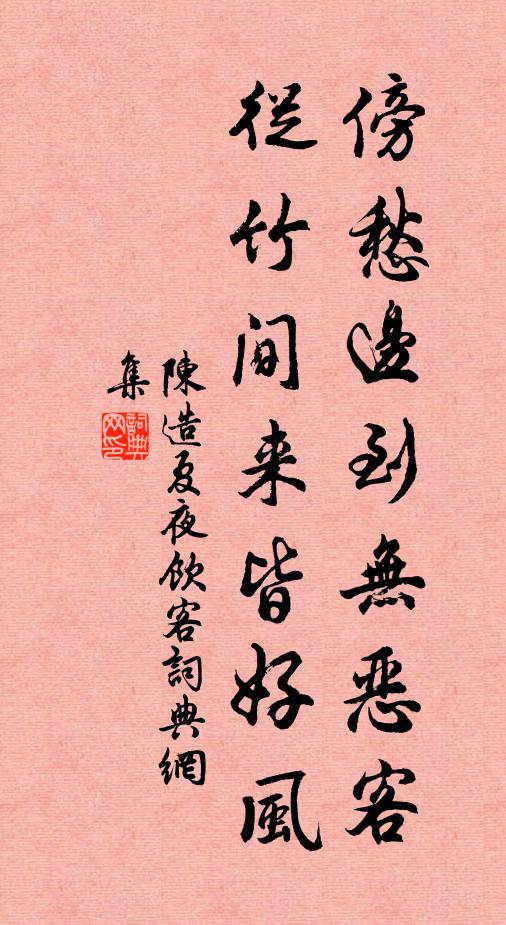 傍愁邊到無惡客
從竹間来皆好風
陳造夏夜飲客詞典網
集
詞典
网印